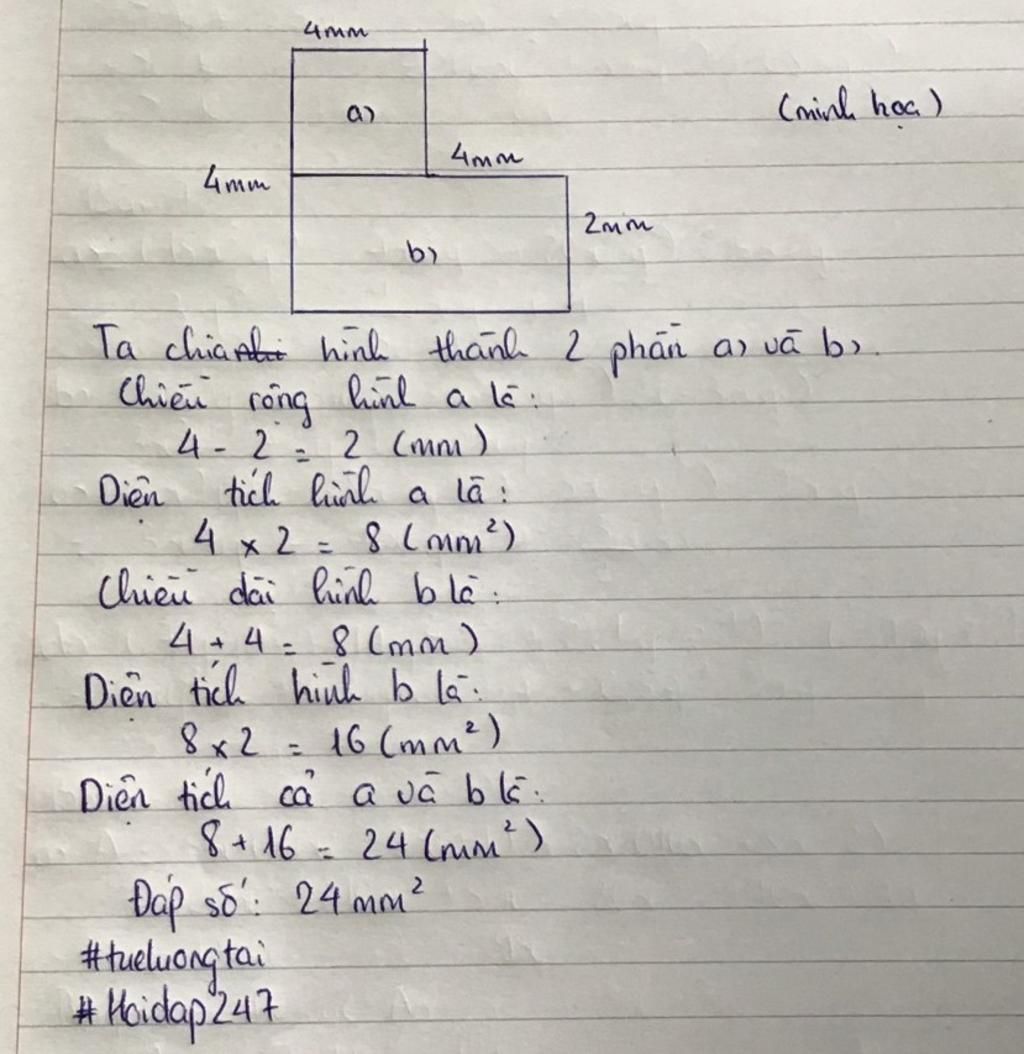 4mm
a)
(minh họa)
4mm
4mm
2mm
b)
Ta chia hình thành 2 phần a) và b).
Chiều rộng hình a là:
4 - 2 = 2 (mm)
Diện tích hình a là:
4 x 2 = 8 (mm²)
Chiều dài hình b là:
4 + 4 = 8 (mm)
Diện tích hình b là:
8 x 2 = 16 (mm²)
Diện tích cả a và b là:
8 + 16 = 24 (mm²)
Đáp số: 24 mm²
#tueluongtai
#Hoidap247